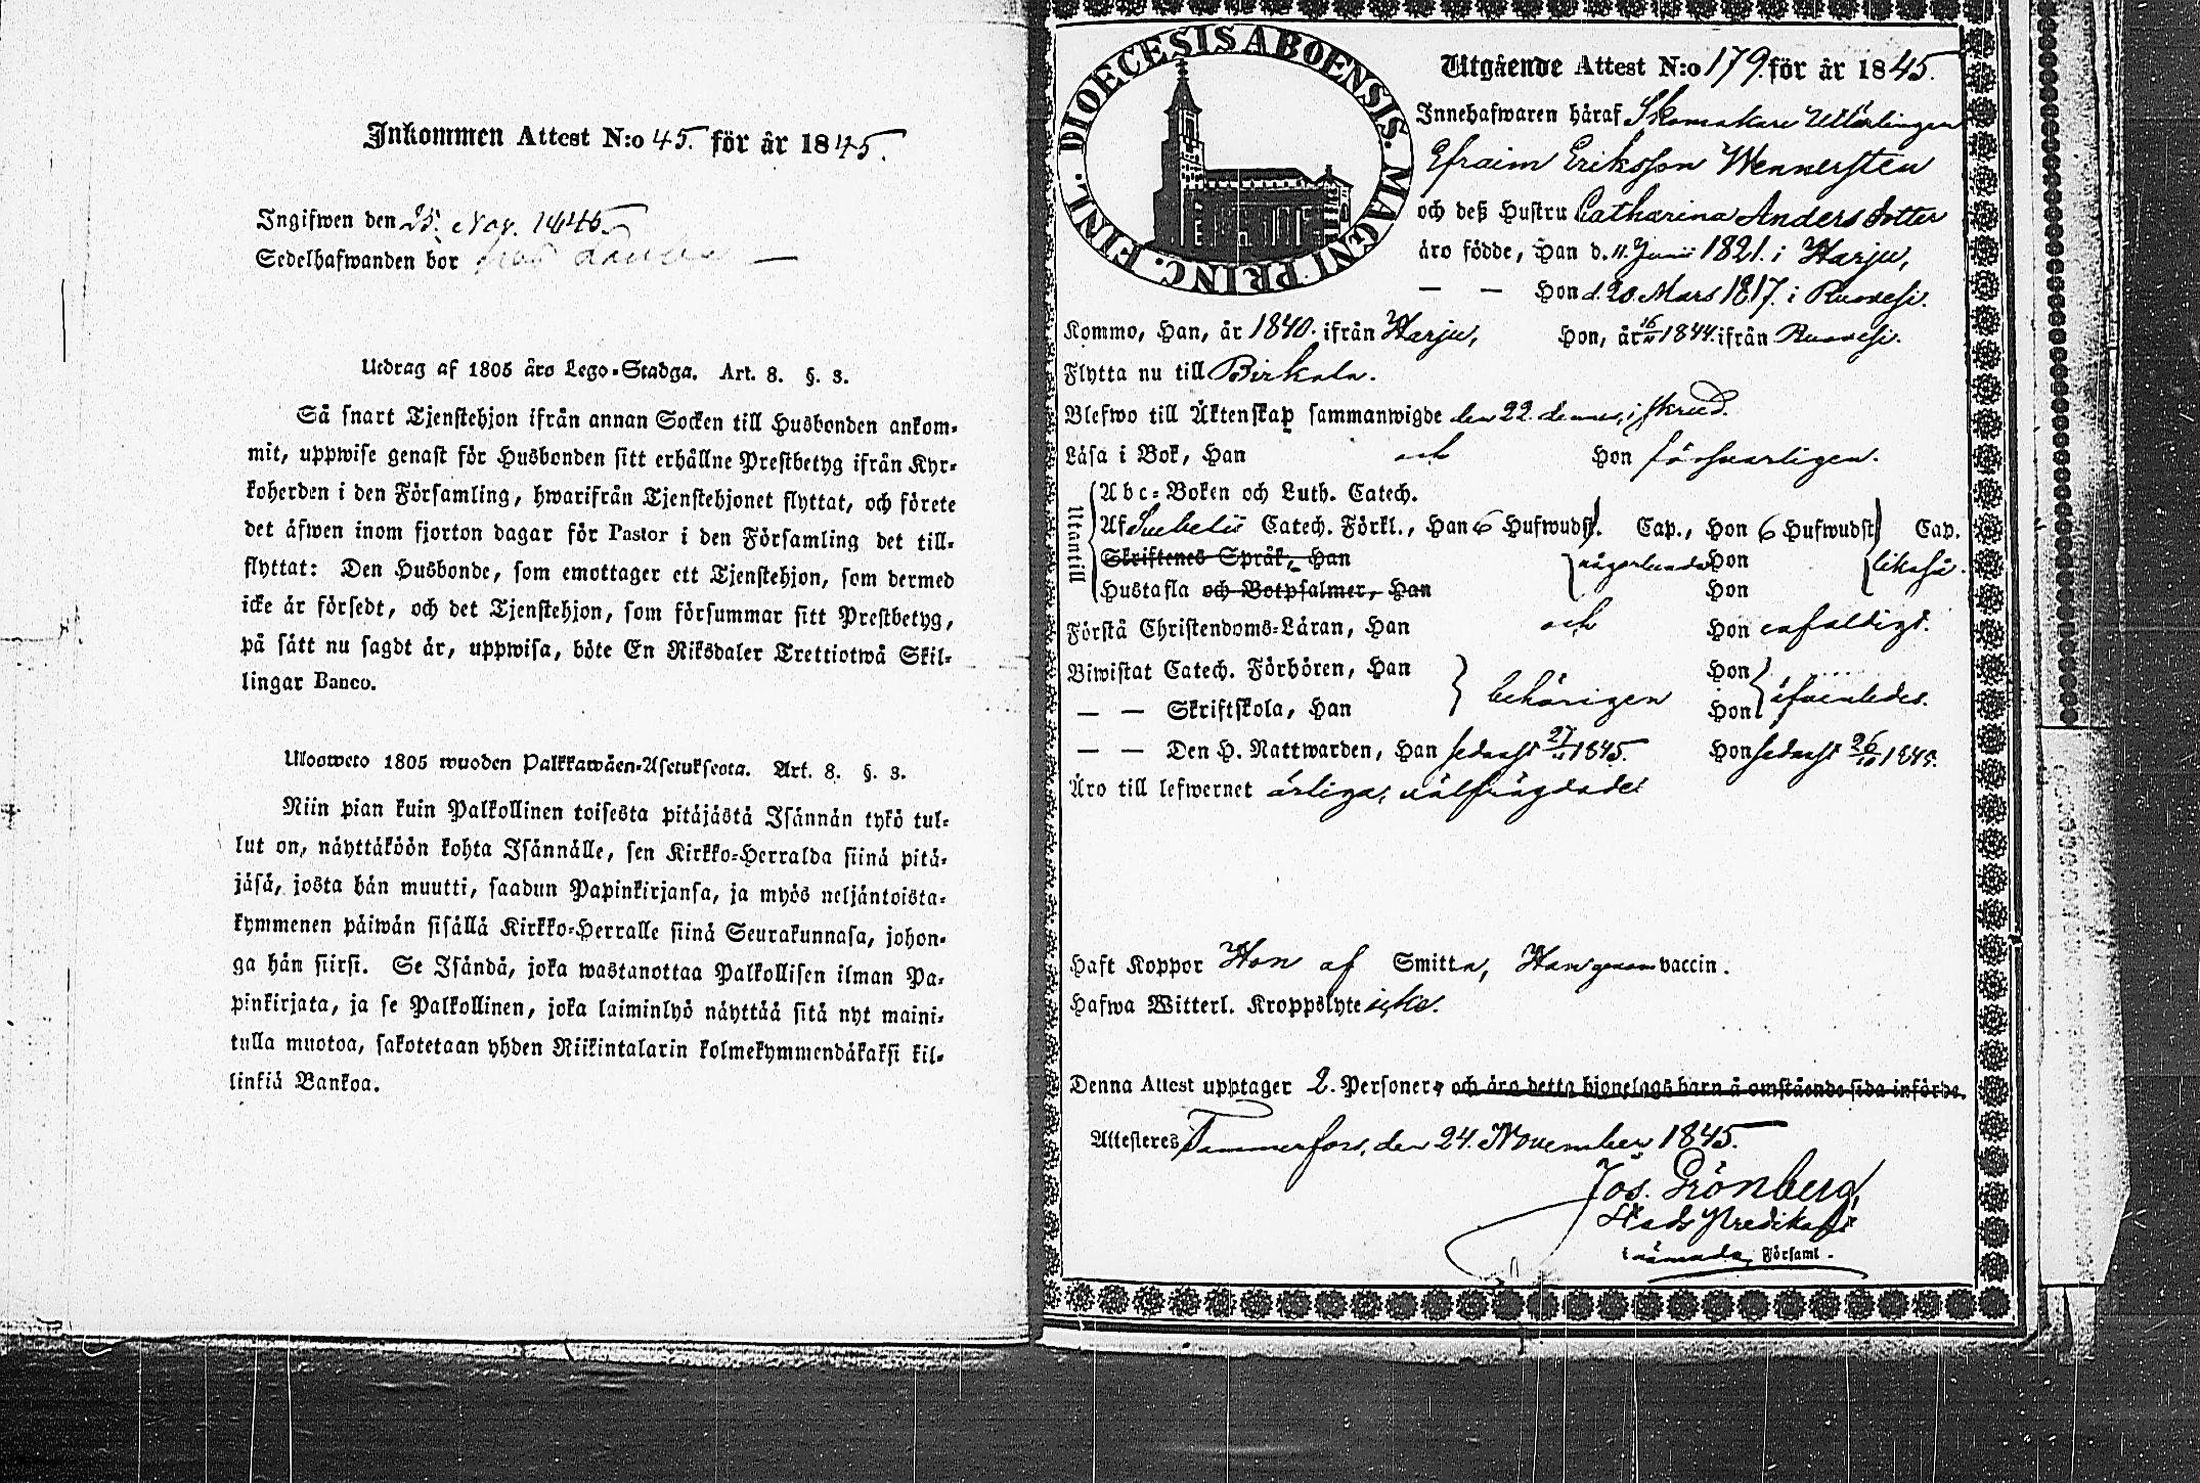 Inkommen Attest N:o 45. för år 1845.
Ingifwen den 25. Nov. 1845.
Sedelhafwanden bor
Utdrag af 1805 års Lego-Stadga. Art. 8. §. 3.
Så snart Tjenstehjon ifrån annan Socken till Husbonden ankom-
mit, uppwise genast för Husbonden sitt erhållne Prestbetyg ifrån Kyr-
koherden i den Församling, hwarifrån Tjenstehjonet flyttat, och förete
det äfwen inom fjorton dagar för Pastor i den Församling det till-
flyttat: Den Husbonde, som emottager ett Tjenstehjon, som dermed
icke är försedt, och det Tjenstehjon, som försummar sitt Prestbetyg,
på sätt nu sagdt är, uppwisa, böte En Riksdaler Trettiotwå Skil-
lingar Banco.
Uloosweto 1805 wuoden Palkkawäen-Asetuksesta. Art. 8. §. 3.
Niin pian kuin Palkollinen toisesta pitäjästä Isännän tykö tul-
lut on, näyttäköön kohta Isännälle, sen Kirkko-Herralda siinä pitä-
jäsä, josta hän muutti, saadun Papinkirjansa, ja myös neljäntoista-
kymmenen päiwän sisällä Kirkko-Herralle siinä Seurakunnasa, johon-
ga hän siirsi. Se Isändä, joka wastanottaa Palkollisen ilman Pa-
pinkirjata, ja se Palkollinen, joka laiminlyö näyttää sitä nyt maini-
tulla muotoa, sakotetaan yhden Riikintalarin kolmekymmendäkaksi kil-
linkiä Bankoa.
DIOECESIS ABOENSIS. MAGNI PRINC. FINL.
Utgående Attest N:o 179. för år 1845.
Innehafwaren häraf Skomakare Utlärlingen
Efraim Eriksson Wennersten
och deß Hustru Catharina Anders dotter
äro födde, Han d. 11. Junii 1821. i Harju,
— — Hon d. 20. Mars 1817. i Ruovesi.
Kommo, Han, år 1840. ifrån Harju, Hon, år 16/11 1844. ifrån Ruovesi.
Flytta nu till Birkala.
Blefwo till Äktenskap sammanwigde den 22. dennes,
Läsa i Bok, Han och Hon försvarligen.
Utantill
Abc-Boken och Luth. Catech.
Af Svebelii Catech. Förkl., Han 6 Hufwudst. Cap., Hon 6 Hufwudst. Cap.
Skriftenes Språk, Han någorlunda Hon likaså.
Hustafla och Botpsalmer, Han Hon
Förstå Christendoms-Läran, Han och Hon enfaldigt.
Biwistat Catech. Förhören, Han behörigen Hon äfvenledes.
— — Skriftskola, Han Hon
— — Den H. Nattwarden, Han sednast 27/4 1845. Hon sednast 26/10 1845.
Äro till lefwernet ärliga, välfrägdade
Haft Koppor Hon af Smitta, Han genom vaccin.
Hafwa Witterl. Kroppslyte icke.
Denna Attest upptager 2. Personer, och äro detta hjonelags barn å omstående sida införde.
Attesteres Tammerfors, den 24. November 1845.
Jos. Grönberg,
Stads Predikant
i nämnda Församl.